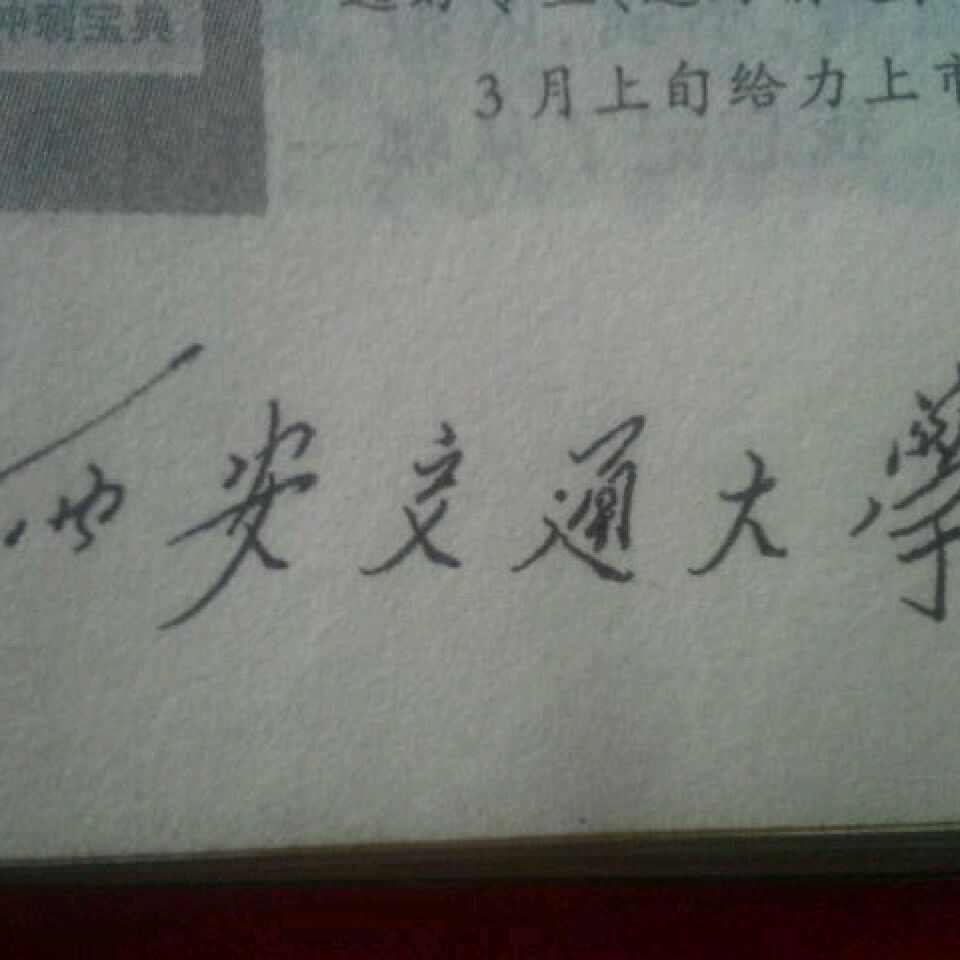 冲刺宝典
3月上旬给力上市
西安交通大學